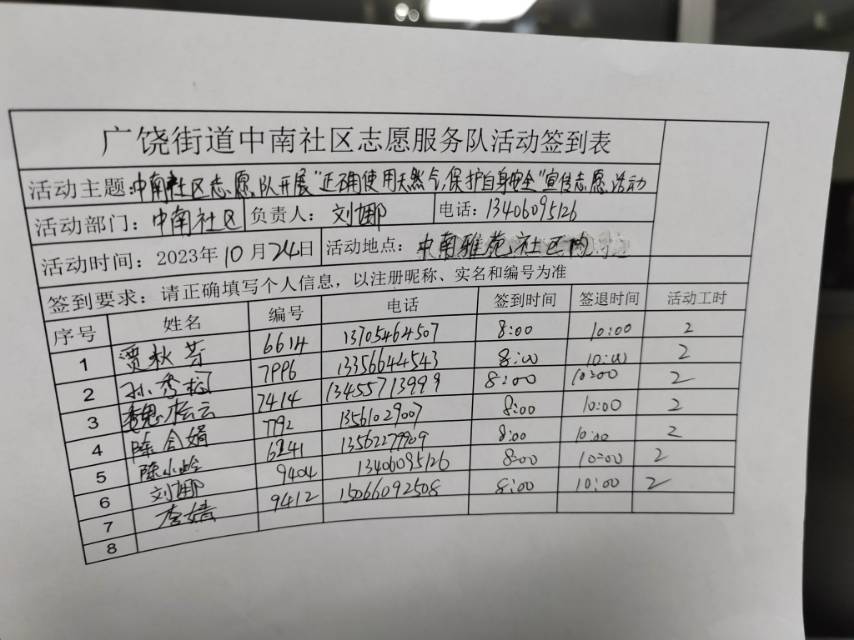 广饶街道中南社区志愿服务队活动签到表
活动主题:中南社区志愿队开展"正确使用天然气,保护自身安全"宣传志愿活动
活动部门: 中南社区 负责人: 刘娜 电话: 13406095126
活动时间: 2023年10月24日 活动地点: 中南雅苑社区
签到要求: 请正确填写个人信息,以注册昵称、实名和编号为准
序号 姓名 编号 电话 签到时间 签退时间 活动工时
1 贾秋芳 6614 13705464507 8:00 10:00 2
2 孙秀 7996 13356644543 8:00 10:00 2
3 魏云 7414 13455713999 8:00 10:00 2
4 陈合娟 7792 13561029007 8:00 10:00 2
5 陈小 6241 13562279909 8:00 10:00 2
6 刘娜 9404 13406095126 8:00 10:00 2
7 李婧 9412 15066092508 8:00 10:00 2
8